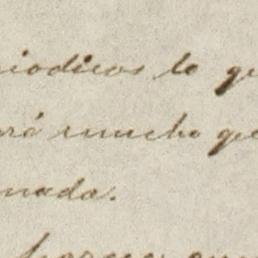 riodicos lo qu
rá mucho que
nada.